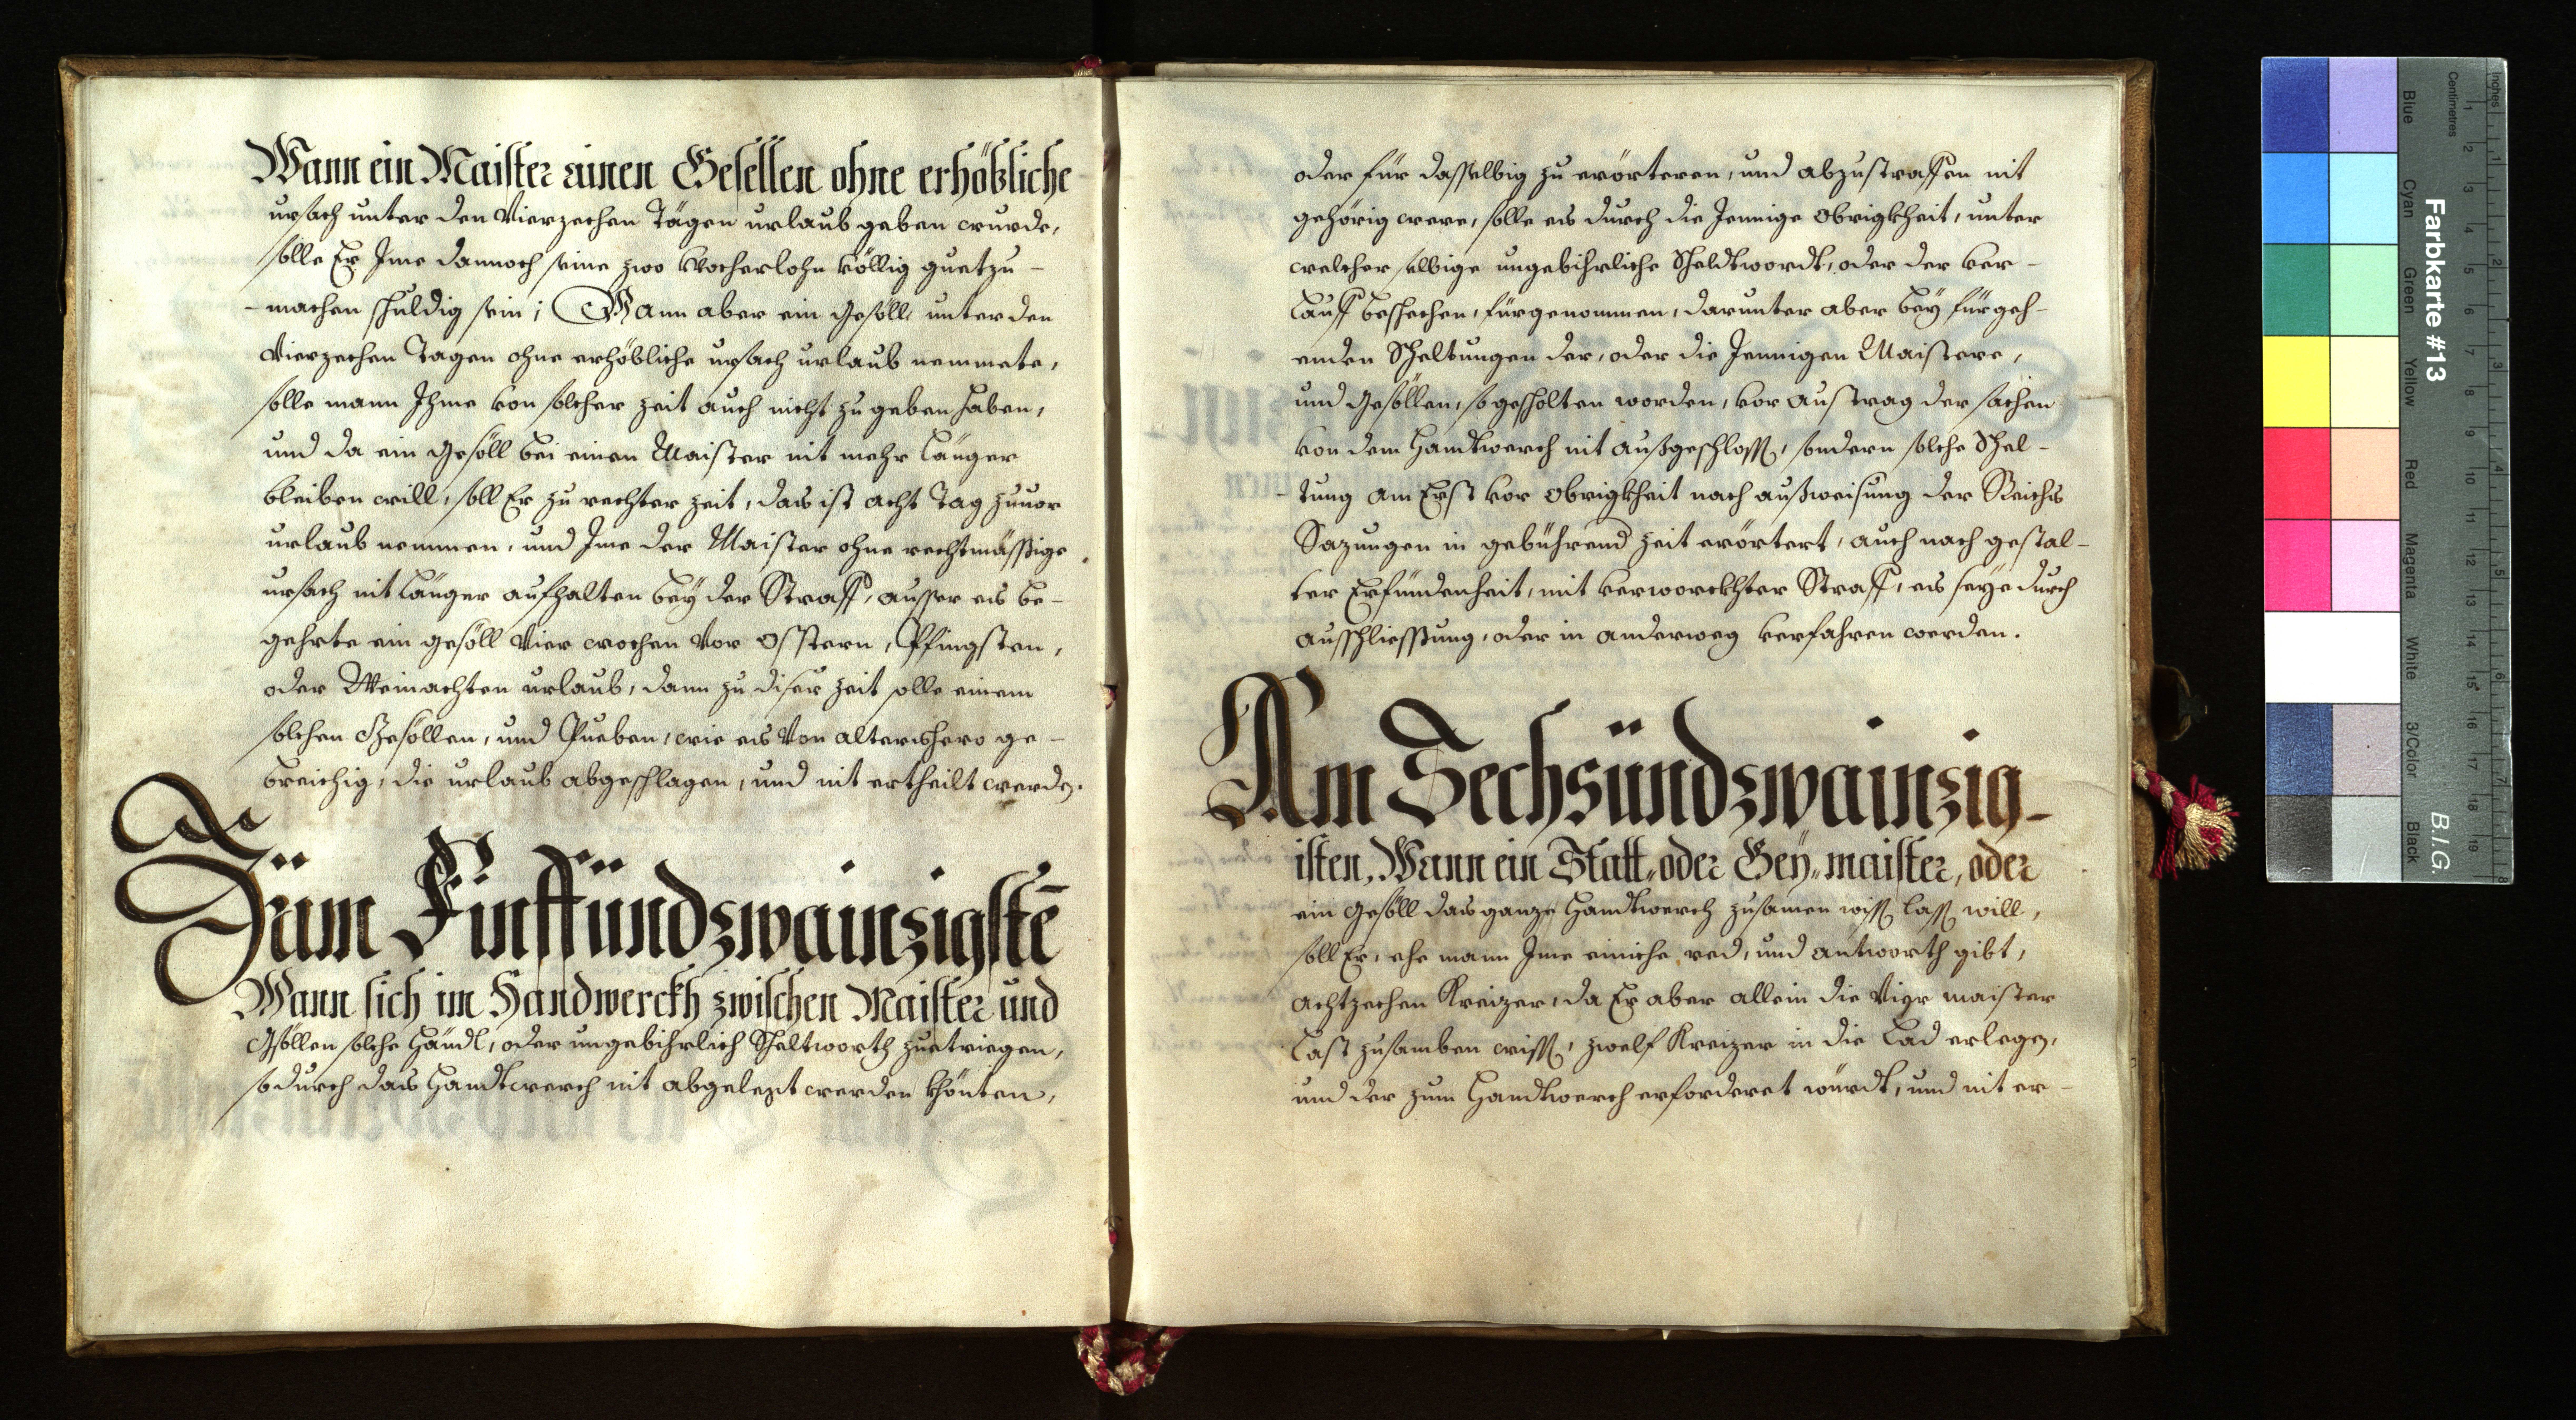 Wann ein Maister einen Gesellen ohne erhöbliche
ursach unter den Vierzechen Tägen urlaub geben wurde,
solle Er Ime dannoch seine zwo Wocherlohn völlig guetzu-
-machen schuldig sein; Wann aber ein Gesöll unter den
Vierzechen Tagen ohne erhöbliche ursach urlaub nemmete,
solle mann Ihme von solcher zeit auch nicht zu geben haben,
und da ein Gesöll bei einen Maister nit mehr länger
bleiben will, soll Er zu rechter zeit, das ist acht Tag zuuor
urlaub nemmen, und Ime der Maister ohne rechtmässige
ursach nit länger aufhalten bey der Straff, ausser es be-
gehrte ein gesöll Vier wochen Vor Osstern, Pfingsten,
oder Weinachten urlaub, dann zu diser zeit solle einem
solchen Gesöllen, und Pueben, wie es Von altershero ge-
breichig, die urlaub abgeschlagen, und nit ertheilt werdn.
Züm Finffündzwainzigstē
Wann sich im Handwerckh zwischen Maister und
Gsöllen solche Händl, oder ungebihrlich Scheltworth zuetriegen,
so durch das Handtwerch nit abgelegt werden khönten,
oder für dasselbig zu erörteren, und abzustraffen nit
gehörig were, solle es durch die Jennige Obrigkheit, unter
welcher selbige ungebihrliche Scheldtwordt, oder der ver-
lauff beschechen, fürgenommen, darunter aber bey fürgeh-
enden Scheltungen der, oder die Jennigen Maistere,
und Gesöllen, so gescholten worden, vor austrag der sachen
von dem Handtwerch nit außgeschlossn, sondern solche Schel-
-tung am Erst vor Obrigkheit nach außweisung der Reichs
Sazungen in gebührend zeit erörtert, auch nach gestal-
ter Erfündenheit, mit verworckhter Straff, es seye durch
ausschliessung, oder in anderweg verfahren werden.
Am Sechsündzwainzig-
isten, Wann ein Statt„ oder Geÿ„ maister, oder
ein Gesöll das ganze Handtwerch zusamen wissn lassn will,
soll Er, ehe mann Ime einiche red, und antworth gibt,
achtzechen Kreizer, da Er aber allein die Vier maister
last zusamben wissn, zwelf Kreizer in die Lad erlegn,
und der zum Handtwerch erforderet würdt, und nit er-
Farbkarte #13
B.I.G.
Blue
Cyan
Green
Yellow
Red
Magenta
White
3/Color
Black
Inches
Centimetres
1 2 3 4 5 6 7 8
1 2 3 4 5 6 7 8 9 10 11 12 13 14 15 16 17 18 19